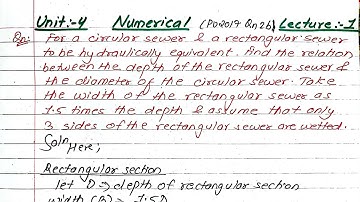 Unit:-4 Numerical (PO2019 Qn2b) Lecture:-1
Qn: For a circular sewer & a rectangular sewer
to be hydraulically equivalent. And the relation
between the depth of the rectangular sewer &
the diameter of the circular sewer. Take
the width of the rectangular sewer as
1.5 times the depth & assume that only
3 sides of the rectangular sewer are wetted.
Soln Here;
Rectangular section
let D => depth of rectangular section
width (B) => 1.5D